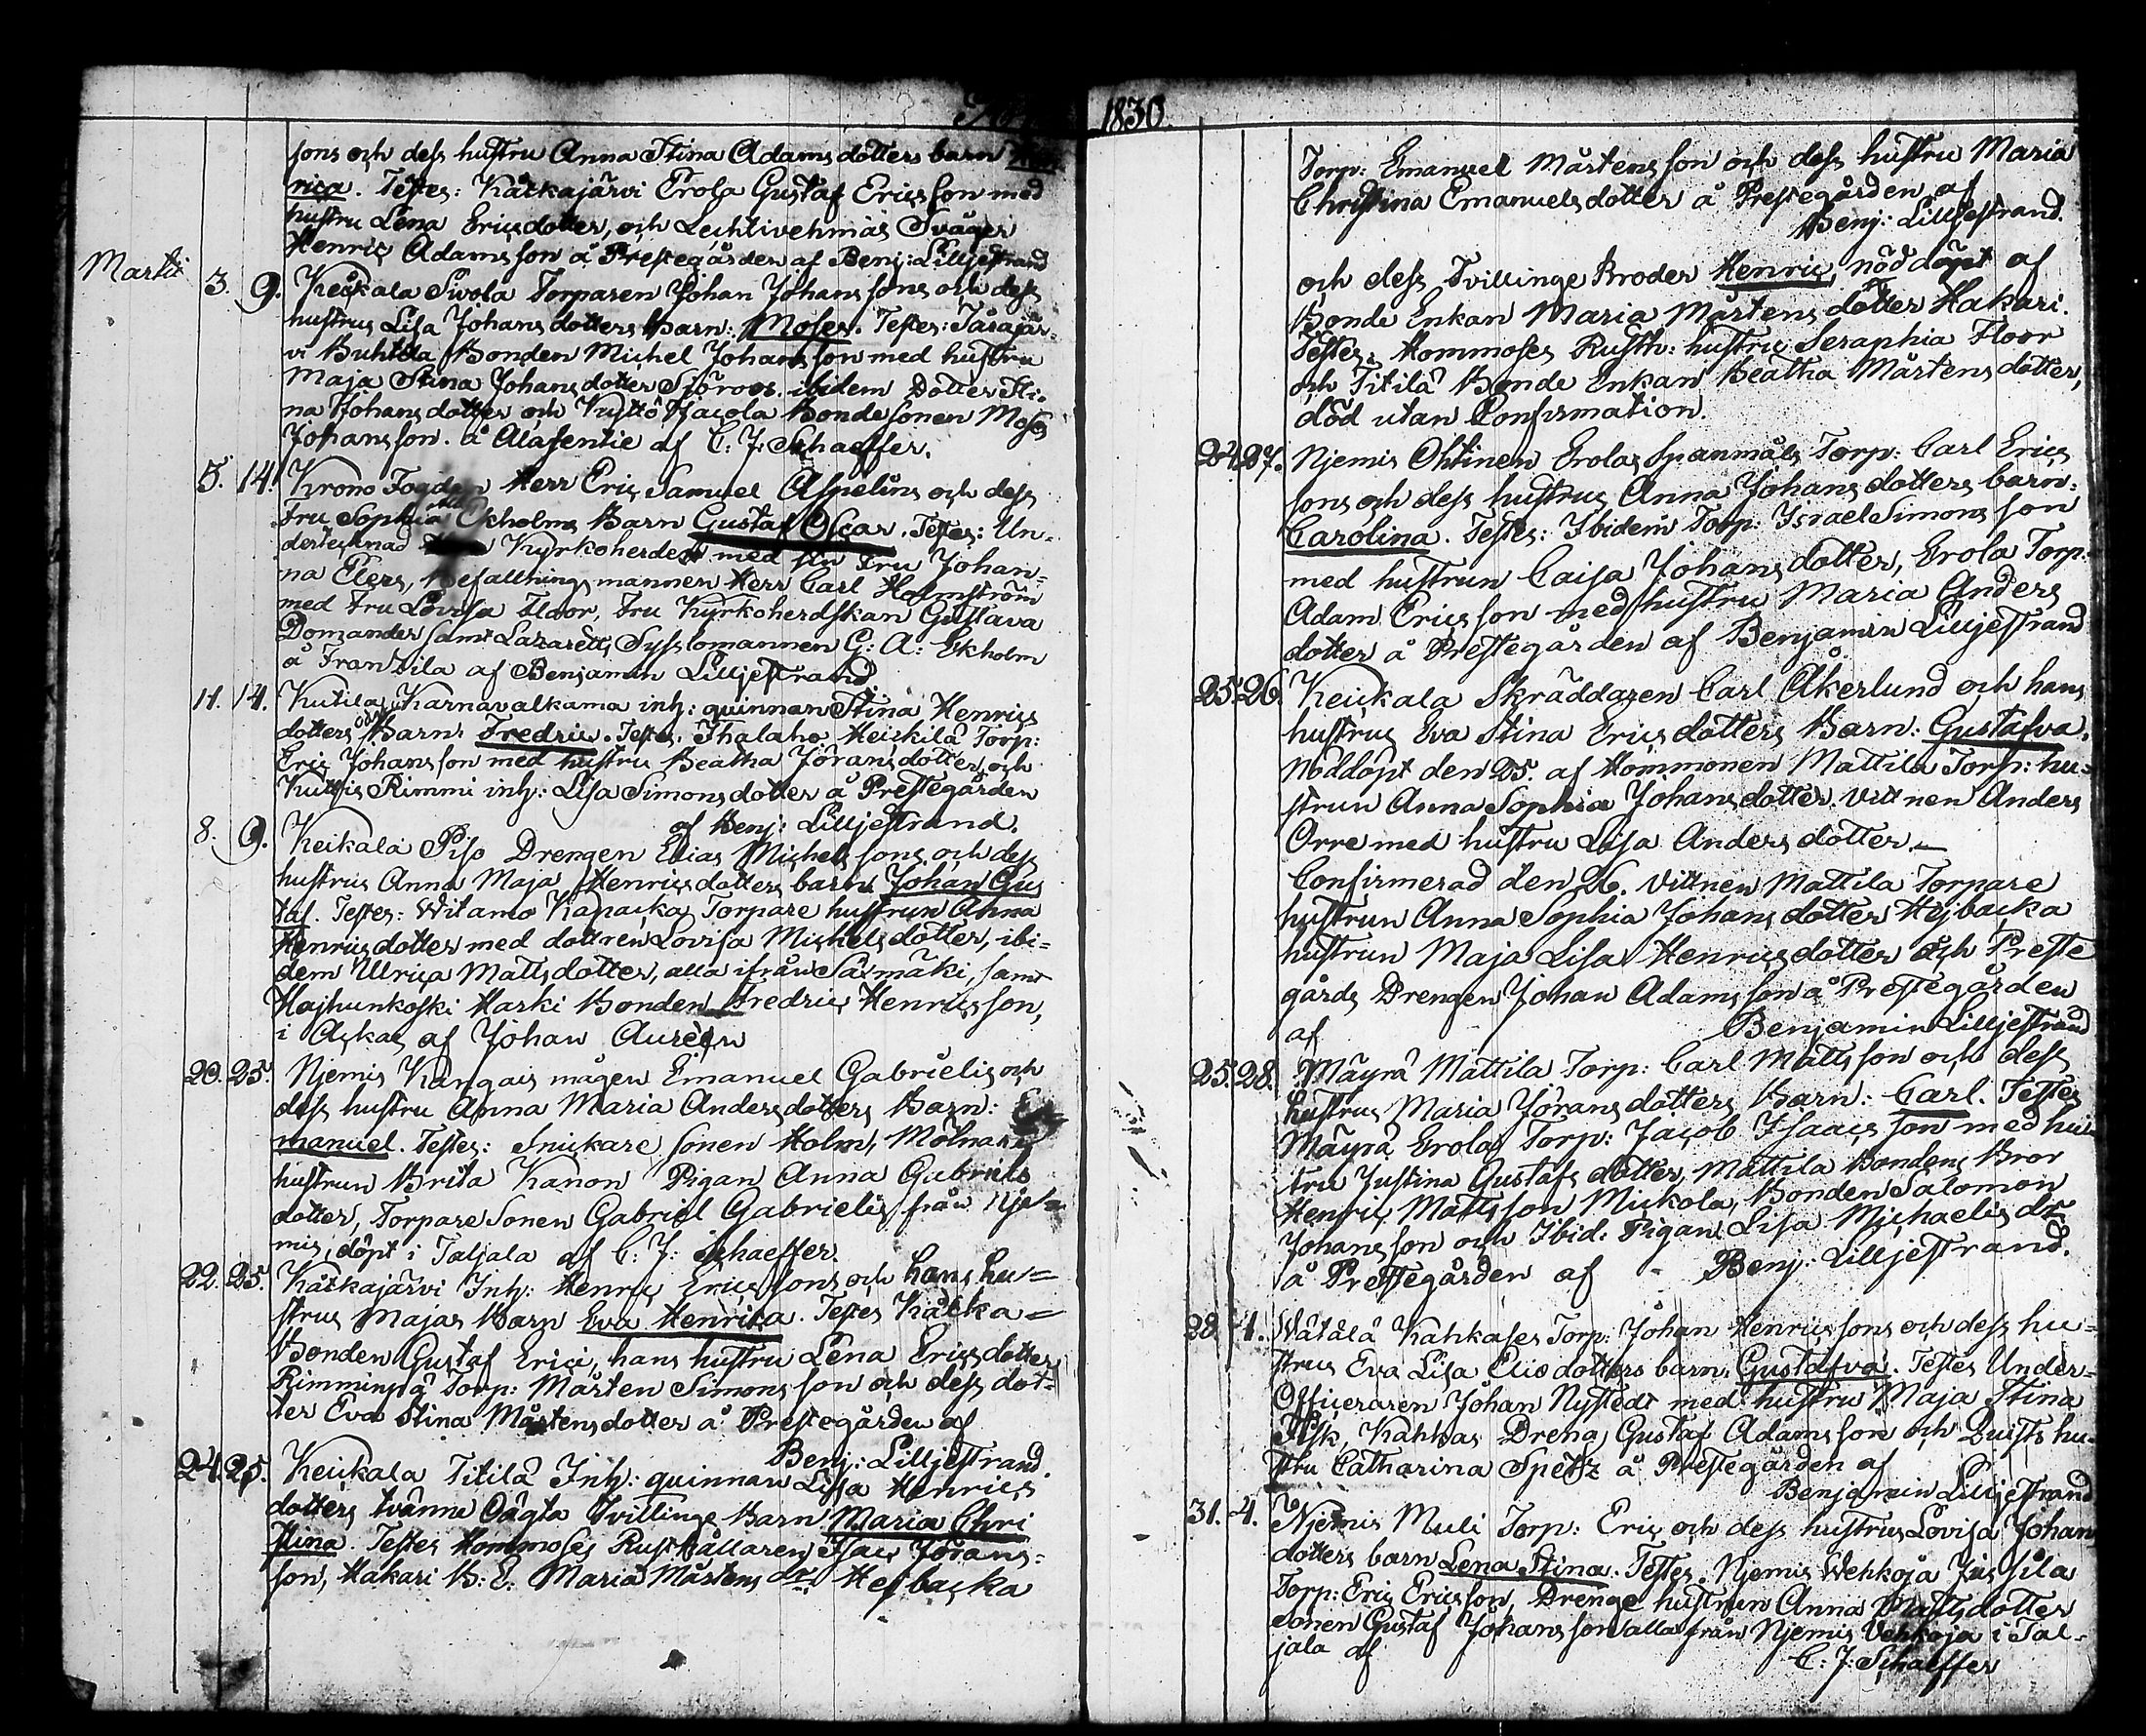 1830.
sons och dess hustru Anna Stina Adams dotters barn
rica. Testes: Kåckajärvi Erola Gustaf Ericsson med
hustru Lena Ericsdotter, och Lechtivehmäs Svåger
Henric Adamsson å Prestegården af Benj: Lilljestrand
Martii 3. 9. Keikala Sivola Torparen Johan Johanssons och dess
hustrus Lisa Johansdotters Barn: Moses. Testes: Järajär-
vi Buhtila Bonden Michel Johansson med hustru
Maja Stina Johansdotter Sjöroos. ibidem Dotter Sti-
na Johansdotter och Kyttö Jacola Bondesonen Moses
Johansson. å Alasentie af C. J. Schaeffer.
5. 14. Krono Fogden Herr Eric Samuel Aspelins och dess
Fru Sophia Ekholms Barn Gustaf Oscar. Testes: Un-
dertecknad Kyrkoherden med sin Fru Johan-
na Elers, Befallningsmannen Herr Carl Holmström
med Fru Lovisa Floor, Fru Kyrkoherdskan Gustava
Domander samt Lazaretts Sysslomannen G: A: Ekholm
å Frantsila af Benjamin Lilljestrand
11. 14. Kutila Karnavalkama inh: quinnan Stina Henrics
dotters Barn: Fredric. Testes. Thalaho Heickilä Torp:
Eric Johansson med hustru Beatha Jöransdotter, och
Kuttis Rimmi inh: Lisa Simonsdotter å Prestegården
af Benj: Lilljestrand.
8. 9. Keikala Piso Drengen Elias Michelssons och dess
hustrus Anna Maja Henricsdotters barn Johan Gus
taf. Testes: Witamo Kapacka Torpare hustrun Anna
Henricsdotter med dottren Lovisa Michelsdotter, ibi-
dem Ulrica Mattsdotter, alla ifrån Säxmäki, samt
Hajhunkoski Harki Bonden Fredric Henricsson,
i Ackas af Johan Aureen
20. 25. Njemis Kangais mågen Emanuel Gabrielis och
dess hustru Anna Maria Andersdotters Barn: E
manuel. Testes: Snickare sonen Holm, Mölnare
hustrun Brita Kanon Pigan Anna Gabriels
dotter, Torpare Sonen Gabriel Gabrielis från Nje-
mis, döpt i Taljala af C: J: Schaeffer.
22. 25. Kåckajärvi Inh: Henric Ericssons och hans hu-
strus Majas Barn Eva Henrica. Testes Kåcka-
Bonden Gustaf Erici, hans hustru Lena Ericsdotter
Rimminpä Torp: Mårten Simonsson och dess dot-
ter Eva Stina Mårtensdotter å Prestegården af
Benj: Lilljestrand.
24. 25. Keikala Titilä Inh: quinnan Lisa Henrics
dotters tvänne Oägta Tvillinge Barn Maria Chri
stina. Testes Hommoses Rusthållaren Isac Jörans-
son, Hakari B: E: Maria Mårtens dr. Hejbacka
Torp: Emanuel Mårtensson och dess hustru Maria
Christina Emanuelsdotter å Prestegården af
Benj: Lilljestrand.
och dess Tvillinge Broder Henric, nöddöpt af
Bonde Enkan Maria Mårtensdotter Hakari.
Testes: Hommoses Rusth: hustru Seraphia Floor
och Titilä Bonde Enkan Beatha Mårtensdotter,
död utan Confirmation.
24. 27. Njemis Ohtinen Erolas Spanmåls Torp: Carl Erics
sons och dess hustrus Anna Johansdotters barn:
Carolina. Testes: Ibidem Torp: Israel Simonsson
med hustrun Caisa Johansdotter, Erola Torp:
Adam Ericsson med hustru Maria Anders
dotter å Prestegården af Benjamin Lilljestrand
25. 26. Keikala Skräddaren Carl Åkerlund och hans
hustrus Eva Stina Ericsdotters Barn: Gustafva.
Nöddöpt den 25. af Hommonen Mattila Torp: hu-
strun Anna Sophia Johansdotter. Vittnen Anders
Orre med hustru Lisa Andersdotter
Confirmerad den 26. Vittnen Mattila Torpare
hustrun Anna Sophia Johansdotter Hejbacka
hustrun Maja Lisa Henricsdotter och Preste
gårds Drengen Johan Adamsson å Prestegården
af Benjamin Lilljestrand
25. 28. Mäyrä Mattila Torp: Carl Mattsson och dess
hustrus Maria Jöransdotters Barn: Carl. Testes
Mäyrä Erolas Torp: Jacob Isaacsson med hu-
stru Justina Gustafsdotter, Mattila Bondens Bror
Henric Mattsson Mickola, Bonden Salomon
Johansson och Ibid: Pigan Lisa Michaelis dr
å Prestegården af Benj: Lilljestrand.
28. 4. Wätälä Kahkases Torp: Johan Henricssons och dess hu-
strus Eva Lisa Eliædotters barn. Gustafva. Testes Under-
Officeraren Johan Nystedt med hustru Maja Stina
Fisk, Kahkas Dreng Gustaf Adamsson och Quists hu-
stru Catharina Spetz å Prestegården af
Benjamin Lilljestrand
31. 4. Njemis Muli Torp: Eric och dess hustrus Lovisa Johans
dotters barn Lena Stina. Testes. Njemis Wehkoja Jussila
Torp: Eric Ericsson, Drenge hustrun Anna Mattsdotter
sonen Gustaf Johansson alla från Njemis Vehkoja i Tal-
jala af
C: J: Schaeffer